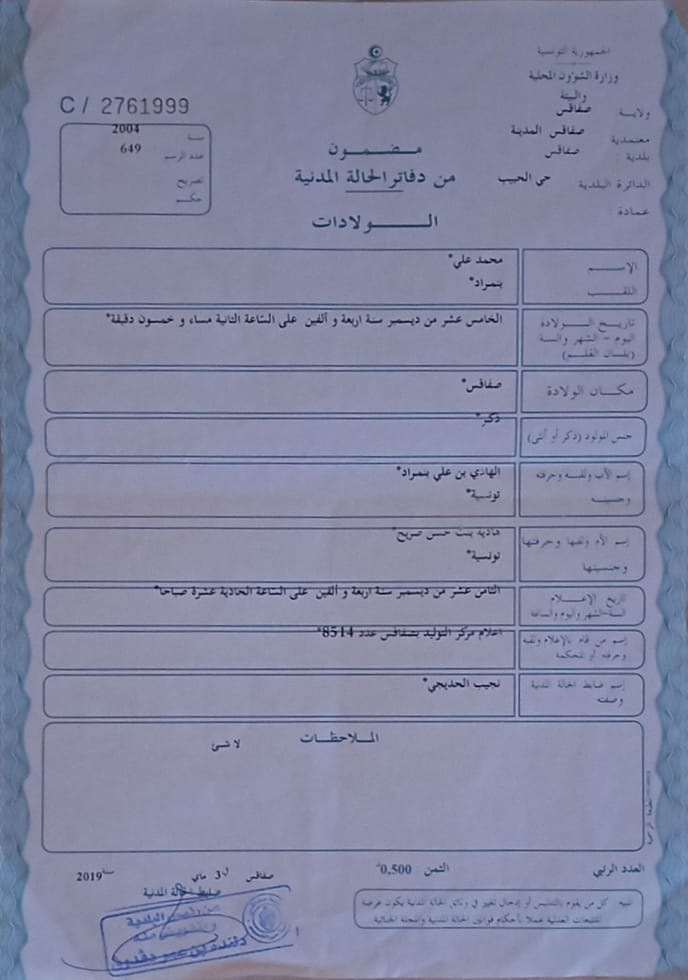 الجمهورية التونسية
وزارة الشؤون المحلية
والبيئة
ولاية : صفاقس
معتمدية : صفاقس المدينة
بلدية : صفاقس
الدائرة البلدية : حي الحبيب
عمادة :
C / 2761999
سنة 2004
عدد الرسم 649
تصريح
حكم
مضمون
من دفاتر الحالة المدنية
الولادات
الإسم محمد علي*
اللقب بنمراد*
تاريخ الولادة الخامس عشر من ديسمبر سنة اربعة و ألفين على الساعة الثانية مساء و خمسون دقيقة*
اليوم - الشهر والسنة
(بلسان القلم)
مكان الولادة صفاقس*
جنس المولود (ذكر أو أنثى) ذكر*
إسم الأب ولقبه وحرفته الهادي بن علي بنمراد*
وجنسيته تونسية*
إسم الأم ولقبها وحرفتها هادية بنت حسن صريح*
وجنسيتها تونسية*
تاريخ الإعلام الثامن عشر من ديسمبر سنة اربعة و ألفين على الساعة الحادية عشرة صباحا*
السنة-الشهر واليوم والساعة
إسم من قام بالإعلام ولقبه اعلام مركز التوليد بصفاقس عدد 8514*
وحرفته أو المحكمة
إسم ضابط الحالة المدنية نجيب الحديجي*
وصفته
الملاحظات
لا شئ
العدد الرتبي
الثمن 0,500د
صفاقس في 3 ماي سنة 2019
ضابط الحالة المدنية
تنبيه كل من يقوم بالتدليس أو إدخال تغيير في وثائق الحالة المدنية يكون عرضة
للتتبعات العدلية عملا بأحكام قوانين الحالة المدنية والمجلة الجنائية